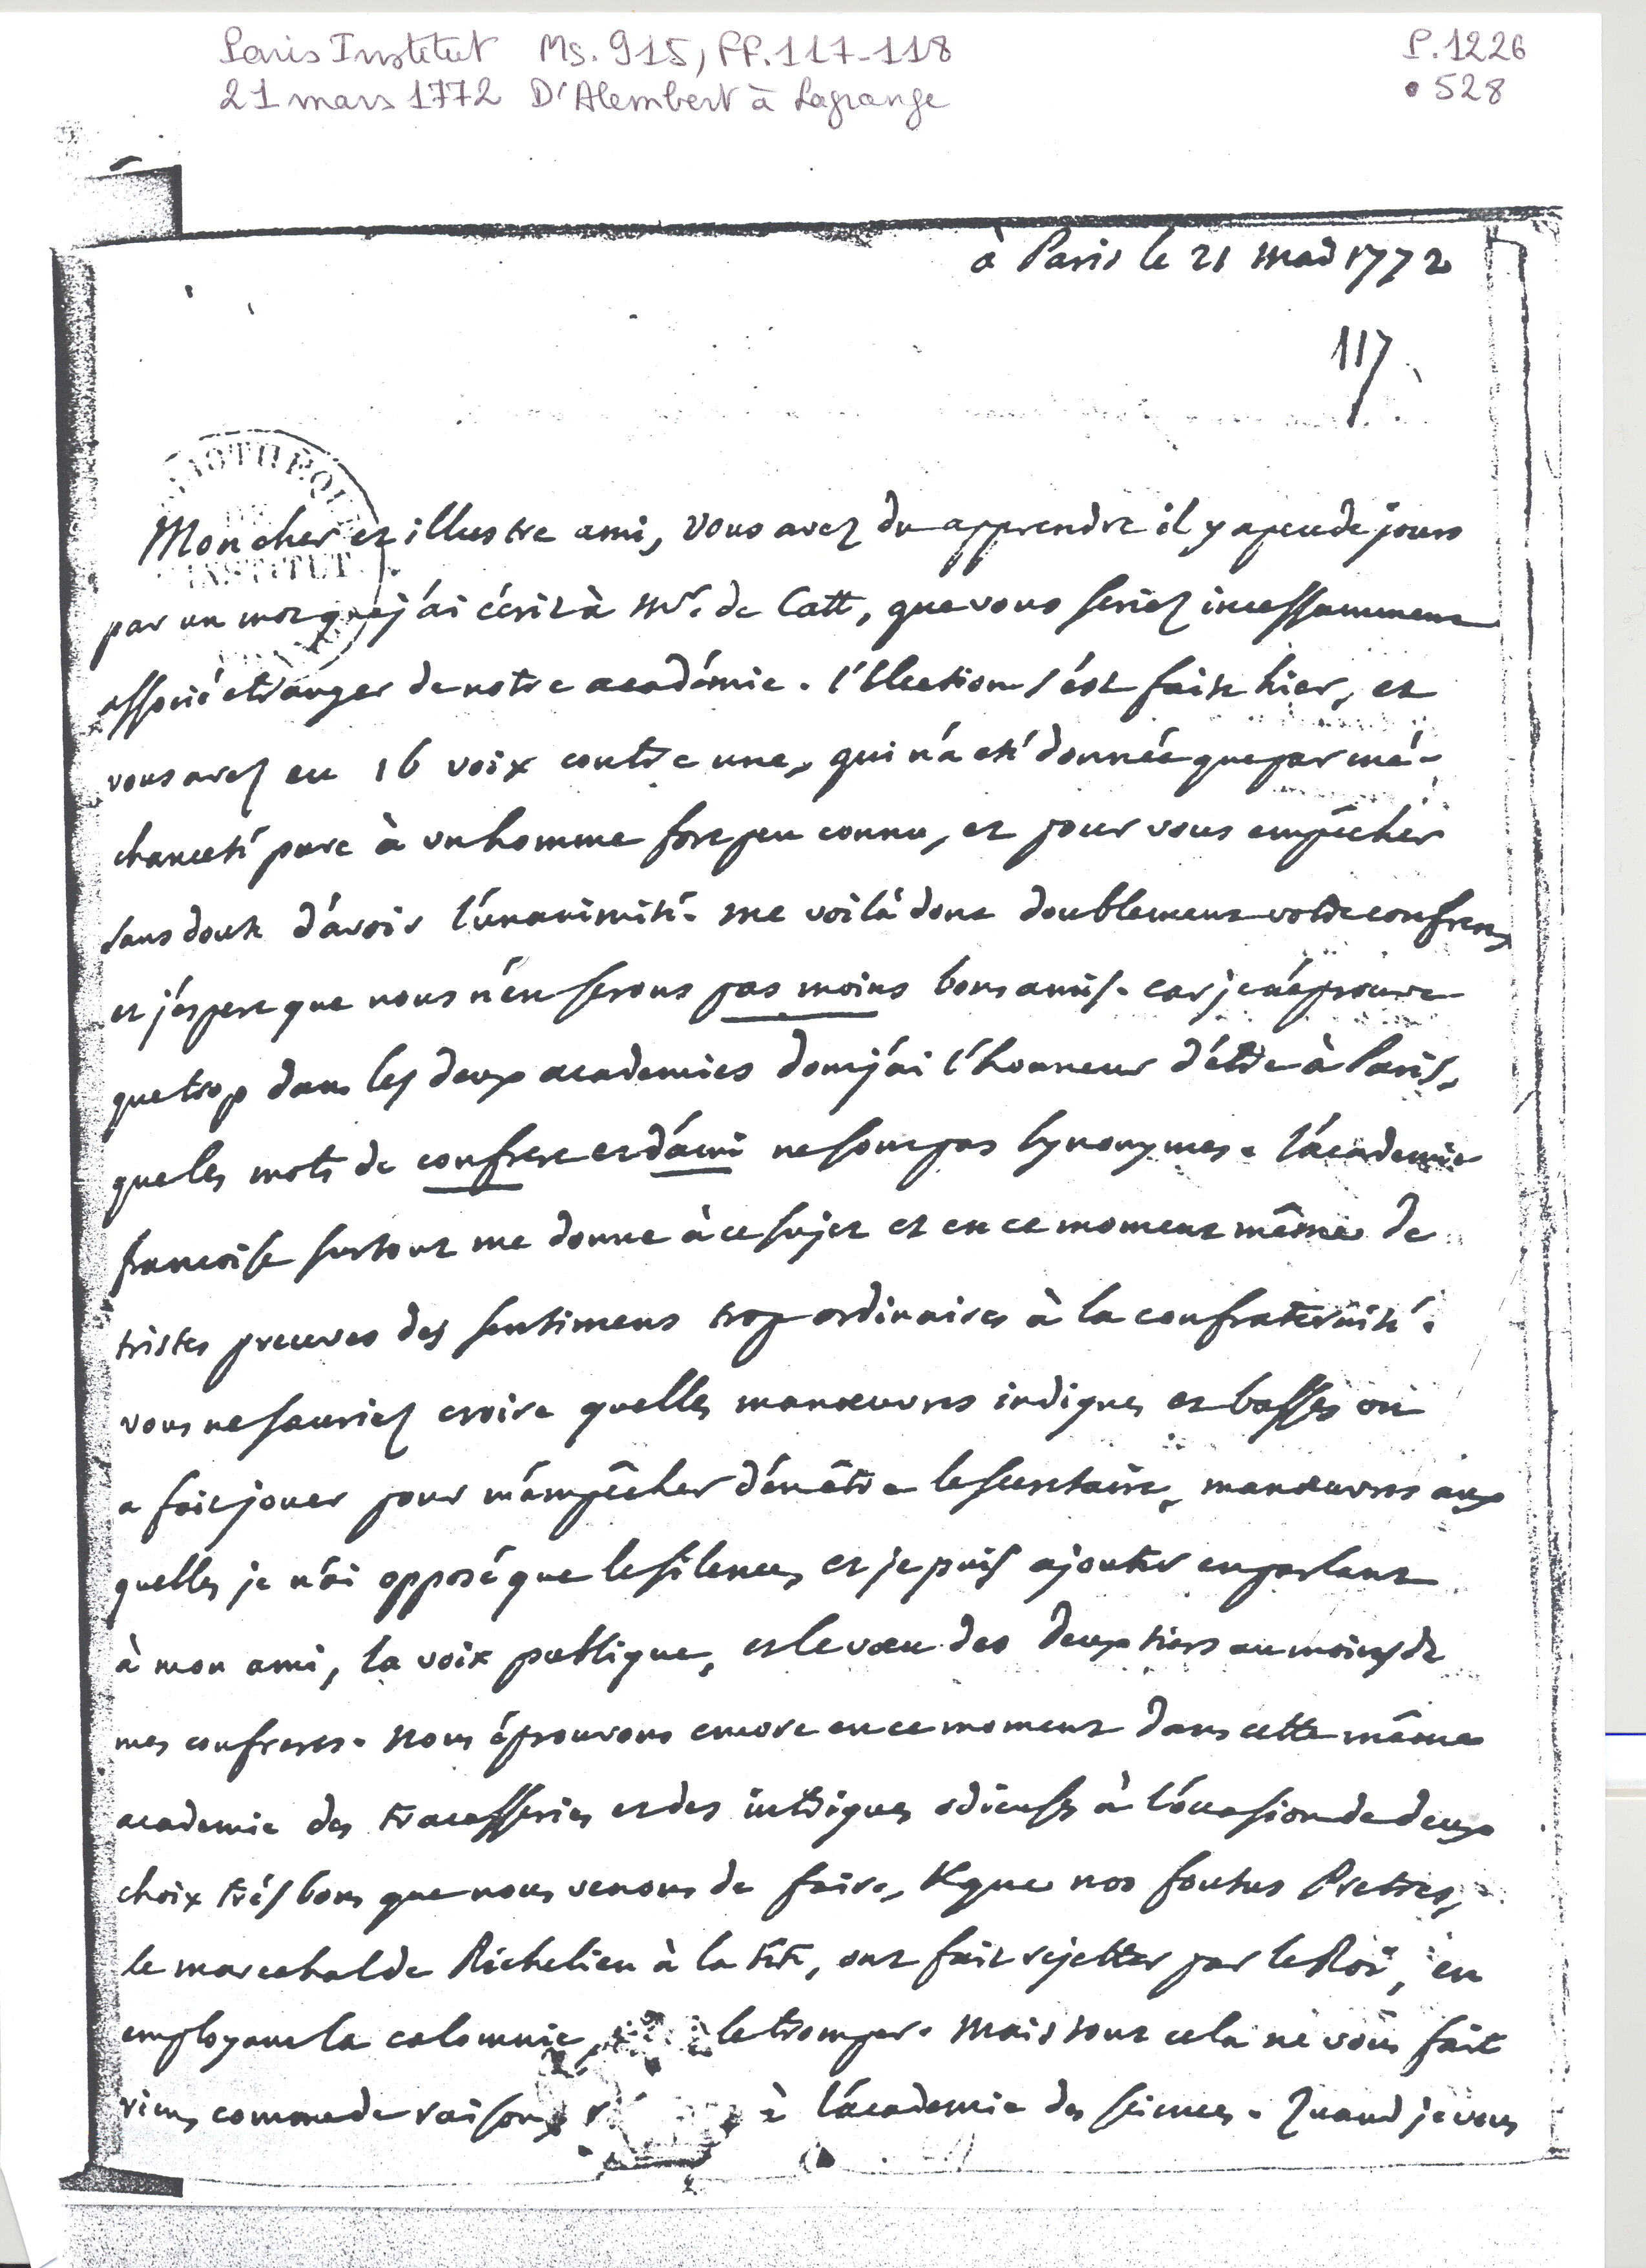 Paris Institut Ms. 915, ff. 117-118
P. 1226
21 mars 1772 D'Alembert à Lagrange
• 528
à Paris le 21 mars 1772
117
BIOTHEQU
INSTITUT
Mon cher et illustre ami, vous avez du apprendre il y a peu de jours
par un mot que j'ai écrit à Mr. de Catt, que vous seriez incessamment
associé etranger de notre académie. l'Election s'est faite hier, et
vous avez eu 16 voix contre une, qui n'a eté donnée que par mé-
chanceté pure à un homme fort peu connu, et pour vous empêcher
sans doute d'avoir l'unanimité. me voilà donc doublement votre confrere,
et j'espere que nous n'en serons pas moins bons amis. car je n'éprouve
que trop dans les deux academies dont j'ai l'honneur d'être à Paris,
que les mots de confrere et d'ami ne sont pas synonymes. l'academie
françoise surtout me donne à ce sujet et en ce moment même de
tristes preuves des sentimens trop ordinaires à la confraternité.
vous ne sauriez croire quelles manœuvres indignes et basses on
a fait jouer pour m'empêcher d'en être le secretaire, manœuvres aux
quelles je n'ai opposé que le silence, et je puis ajouter en parlant
à mon ami, la voix publique, et le vœu des deux tiers au moins de
mes confreres. nous éprouvons encore en ce moment dans cette même
academie des tracasseries et des intrigues odieuses à l'occasion de deux
choix très bons que nous venons de faire, & que nos foutus Pretres,
le marechal de Richelieu à la tete, ont fait rejetter par le Roi, en
employant la calomnie, le tromper. mais tout cela ne vous fait
rien, comme de raison, à l'academie des sciences. Quand je vous